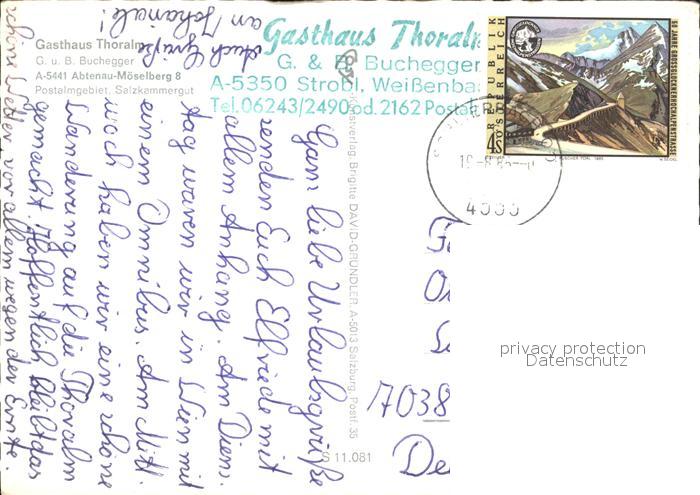 Gasthaus Thoralm
G. u. B. Buchegger
A-5441 Abtenau-Möselberg 8
Postalmgebiet, Salzkammergut
Gasthaus Thoralm
G. & B. Buchegger
A-5350 Strobl, Weißenba
Tel. 06243/2490 od. 2162 Postalm
Ganz liebe Urlaubsgrüße
senden Euch Elfriede mit
allem Anhang. Am Diens-
tag waren wir in Wien mit
einem Omnibus. Am Mitt-
woch haben wir eine schöne
Wanderung auf die Thoralm
gemacht. Hoffentlich bleibt das
schöne Wetter vor allem wegen der Ernte.
Auch Grüße
an Johanna!
Kunstverlag Brigitte DAVID-GRÜNDLER, A-5013 Salzburg, Postf. 35
S 11.081
REPUBLIK
ÖSTERREICH
50 JAHRE GROSSGLOCKNER-HOCHALPENSTRASSE
4
7038
De
privacy protection
Datenschutz